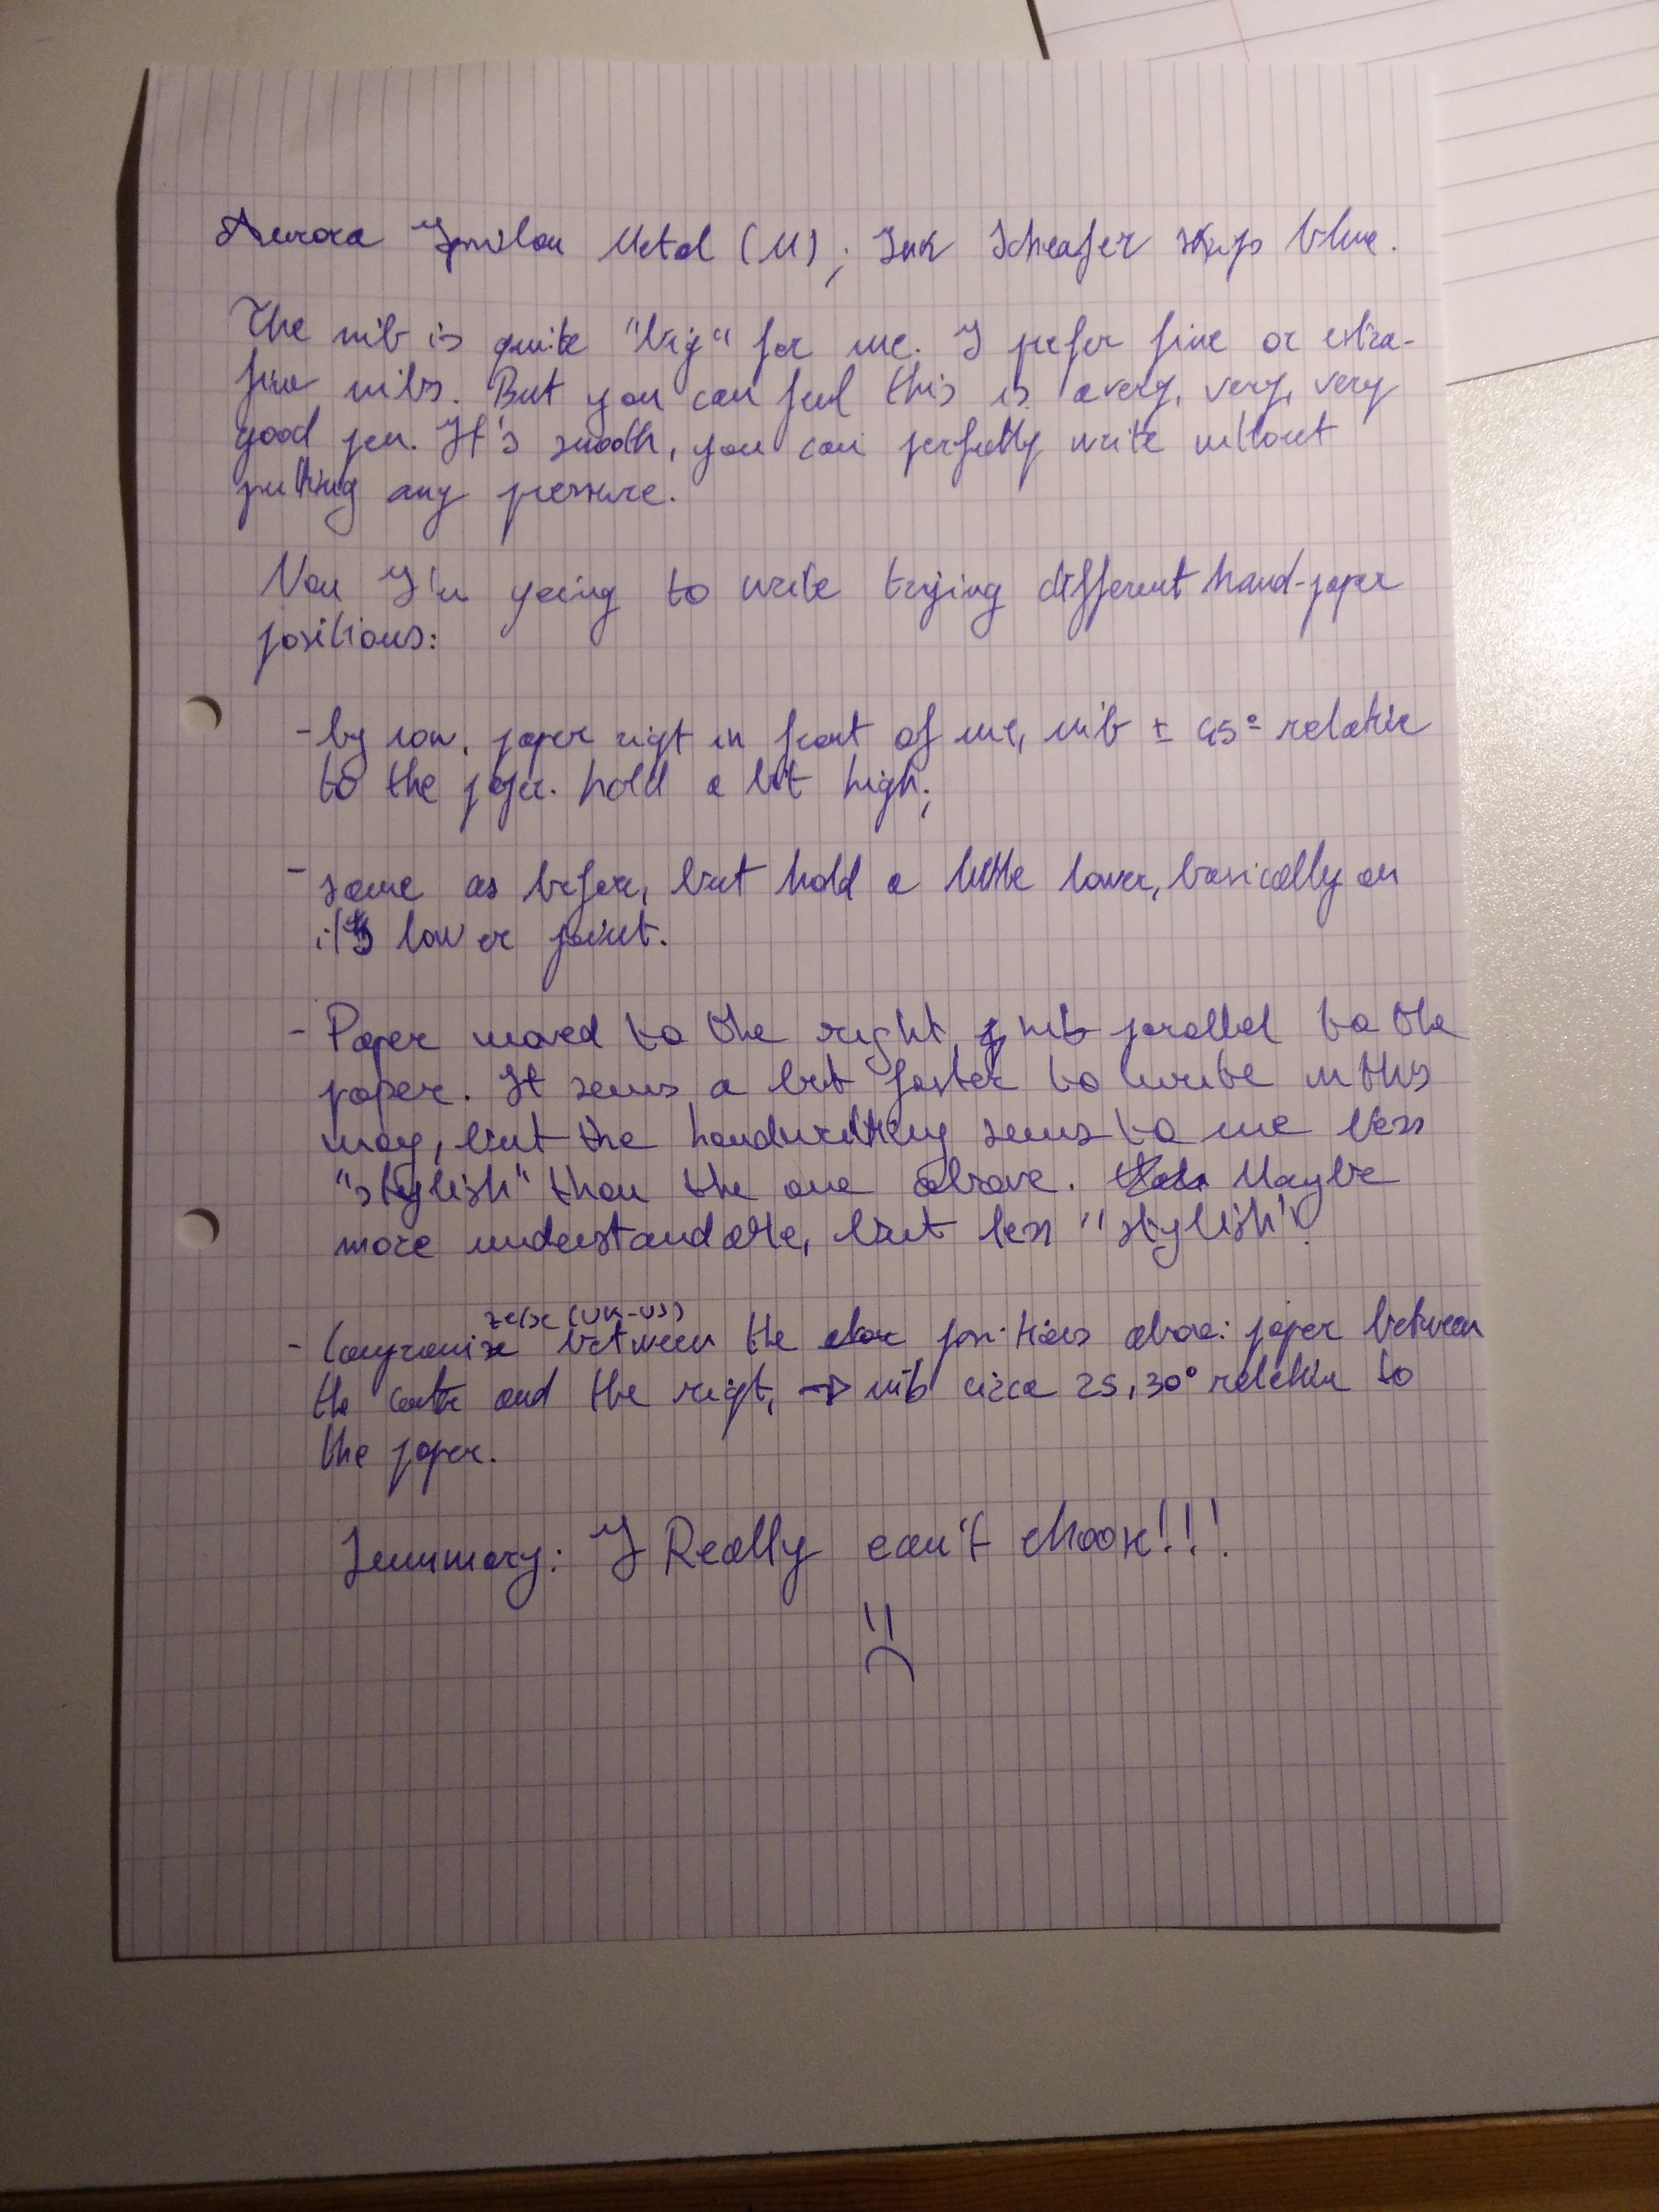 Aurora Ipsilon Metal (M); Ink Scheafer Skrip blue.
The nib is quite "big" for me. I prefer fine or extra-
fine nibs. But you can feel this is a very, very, very
good pen. It's smooth, you can perfectly write without
putting any pressure.
Now I'm going to write trying different hand-paper
positions:
- by now, paper rigt in front of me, nib ± 45° relative
to the paper. hold a bit high;
- same as before, but hold a little lower, basically on
it's lower point.
- Paper moved to the right, nib parallel to the
paper. It seems a bit faster to write in this
way, but the handwriting seems to me less
"stylish" than the one above. Maybe
more understandable, but less "stylish".
ze/se (UK-US)
- Compromise between the positions above: paper between
the cente and the rigt, → nib circa 25, 30° relative to
the paper.
Summary: I Really can't choose!!!
:(